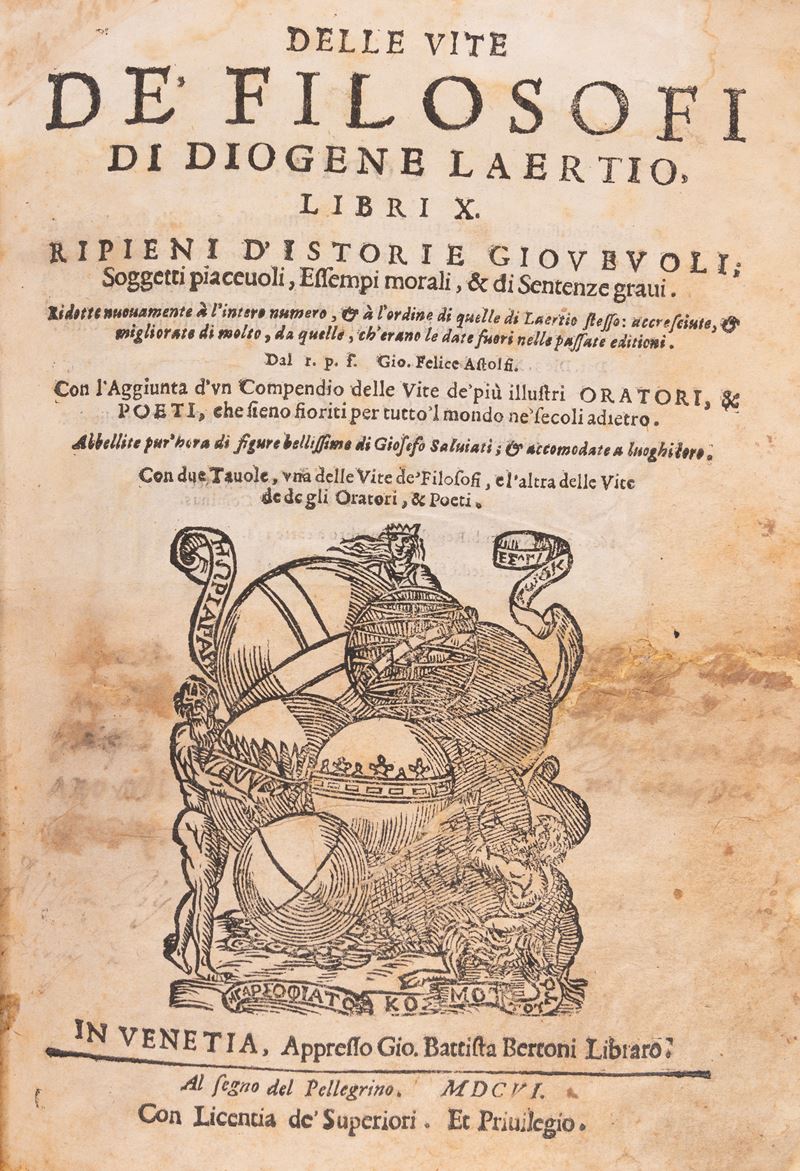 DELLE VITE
DE' FILOSOFI
DI DIOGENE LAERTIO,
LIBRI X.
RIPIENI D'ISTORIE GIOVEVOLI;
Soggetti piaceuoli, Eſſempi morali, & di Sentenze graui.
Ridotte nuouamente à l'intero numero, & à l'ordine di quelle di Laertio ſteſſo: accreſciute, &
migliorate di molto, da quelle, ch'erano le date fuori nelle paſſate editioni.
Dal r. p. f. Gio. Felice Aſtolfi.
Con l'Aggiunta d'vn Compendio delle Vite de'più illuſtri ORATORI, &
POETI, che ſieno fioriti per tutto'l mondo ne'ſecoli adietro.
Abbellite pur'hora di figure belliſſime di Gioſefo Saluiati; & accomodate a luoghi loro.
Con due Tauole, vna delle Vite de'Filoſofi, e l'altra delle Vite
de de gli Oratori, & Poeti.
ΚΟ ΜΟΥ
IN VENETIA, Appreſſo Gio. Battiſta Bertoni Libraro.
Al ſegno del Pellegrino. MDCVI.
Con Licentia de' Superiori. Et Priuilegio.